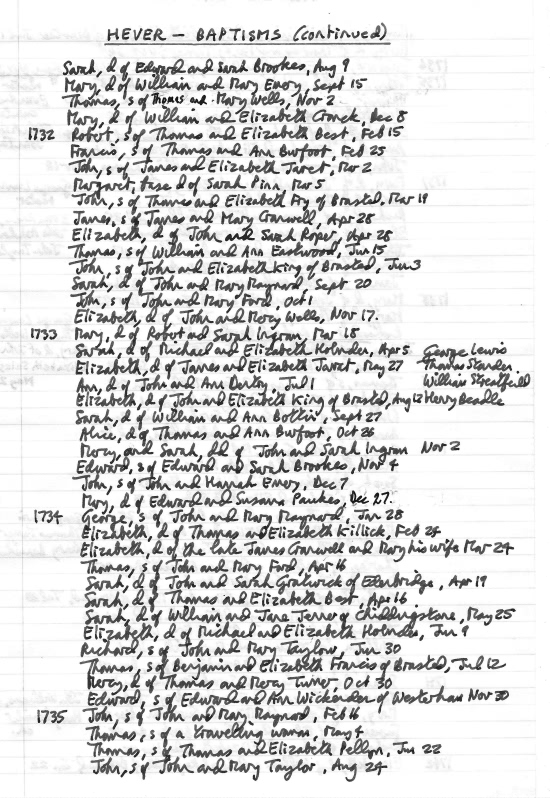 HEVER - BAPTISMS (continued)
Sarah, d of Edward and Sarah Brookes, Aug 9
Mary, d of William and Mary Emory, Sept 15
Thomas, s of Thomas and Mary Wells, Nov 2
Mary, d of William and Elizabeth Dec 8
1732 Robert, s of Thomas and Elizabeth Best, Feb 15
Francis, s of Thomas and Ann Burfoot, Feb 25
John, s of James and Elizabeth Jarret, Mar 2
Margaret, base d of Sarah Pinn, Mar 5
John, s of Thomas and Elizabeth Fry of Brasted, Mar 19
James, s of James and Mary Cranwell, Apr 28
Elizabeth, d of John and Sarah Roper, Apr 28
Thomas, s of William and Ann Eastwood, Jun 15
John, s of John and Elizabeth King of Brasted, Jun 3
Sarah, d of John and Mary Maynard, Sept 20
John, s of John and Mary Ford, Oct 1
Elizabeth, d of John and Mercy Wells, Nov 17.
1733 Mary, d of Robert and Sarah Ingram, Mar 18
Sarah, d of Michael and Elizabeth Holmden, Apr 5 George Lewis
Elizabeth, d of James and Elizabeth Jarret, May 27 Thomas Stander
Ann, d of John and Ann Jul 1 William Streatfeild
Elizabeth, d of John and Elizabeth King of Brasted, Aug 12 Henry Beadle
Sarah, d of William and Ann Botting, Sept 27
Alice, d of Thomas and Ann Burfoot, Oct 26
Mercy, and Sarah, dd of John and Sarah Ingram Nov 2
Edward, s of Edward and Sarah Brookes, Nov 4
John, s of John and Hannah Emery, Dec 7
Mary, d of Edward and Susanna Dec 27.
1734 George, s of John and Mary Maynard, Jan 28
Elizabeth, d of Thomas and Elizabeth Killick, Feb 24
Elizabeth, d of the late James Cranwell and Mary his wife Mar 24
Thomas, s of John and Mary Ford, Apr 16
Sarah, d of John and Sarah Gratwick of Edenbridge, Apr 19
Sarah, d of Thomas and Elizabeth Best, Apr 16
Sarah, d of William and Jane Jenner of Chiddingstone, May 25
Elizabeth, d of Michael and Elizabeth Holmden, Jun 9
Richard, s of John and Mary Taylor, Jun 30
Thomas, s of Benjamin and Elizabeth Francis of Brasted, Jul 12
Mercy, d of Thomas and Mercy Turner, Oct 30
Edward, s of Edward and Ann Wickenden of Westerham Nov 30
1735 John, s of John and Mary Maynard, Feb 16
Thomas, s of a travelling woman, May 4
Thomas, s of Thomas and Elizabeth Jun 22
John, s of John and Mary Taylor, Aug 24